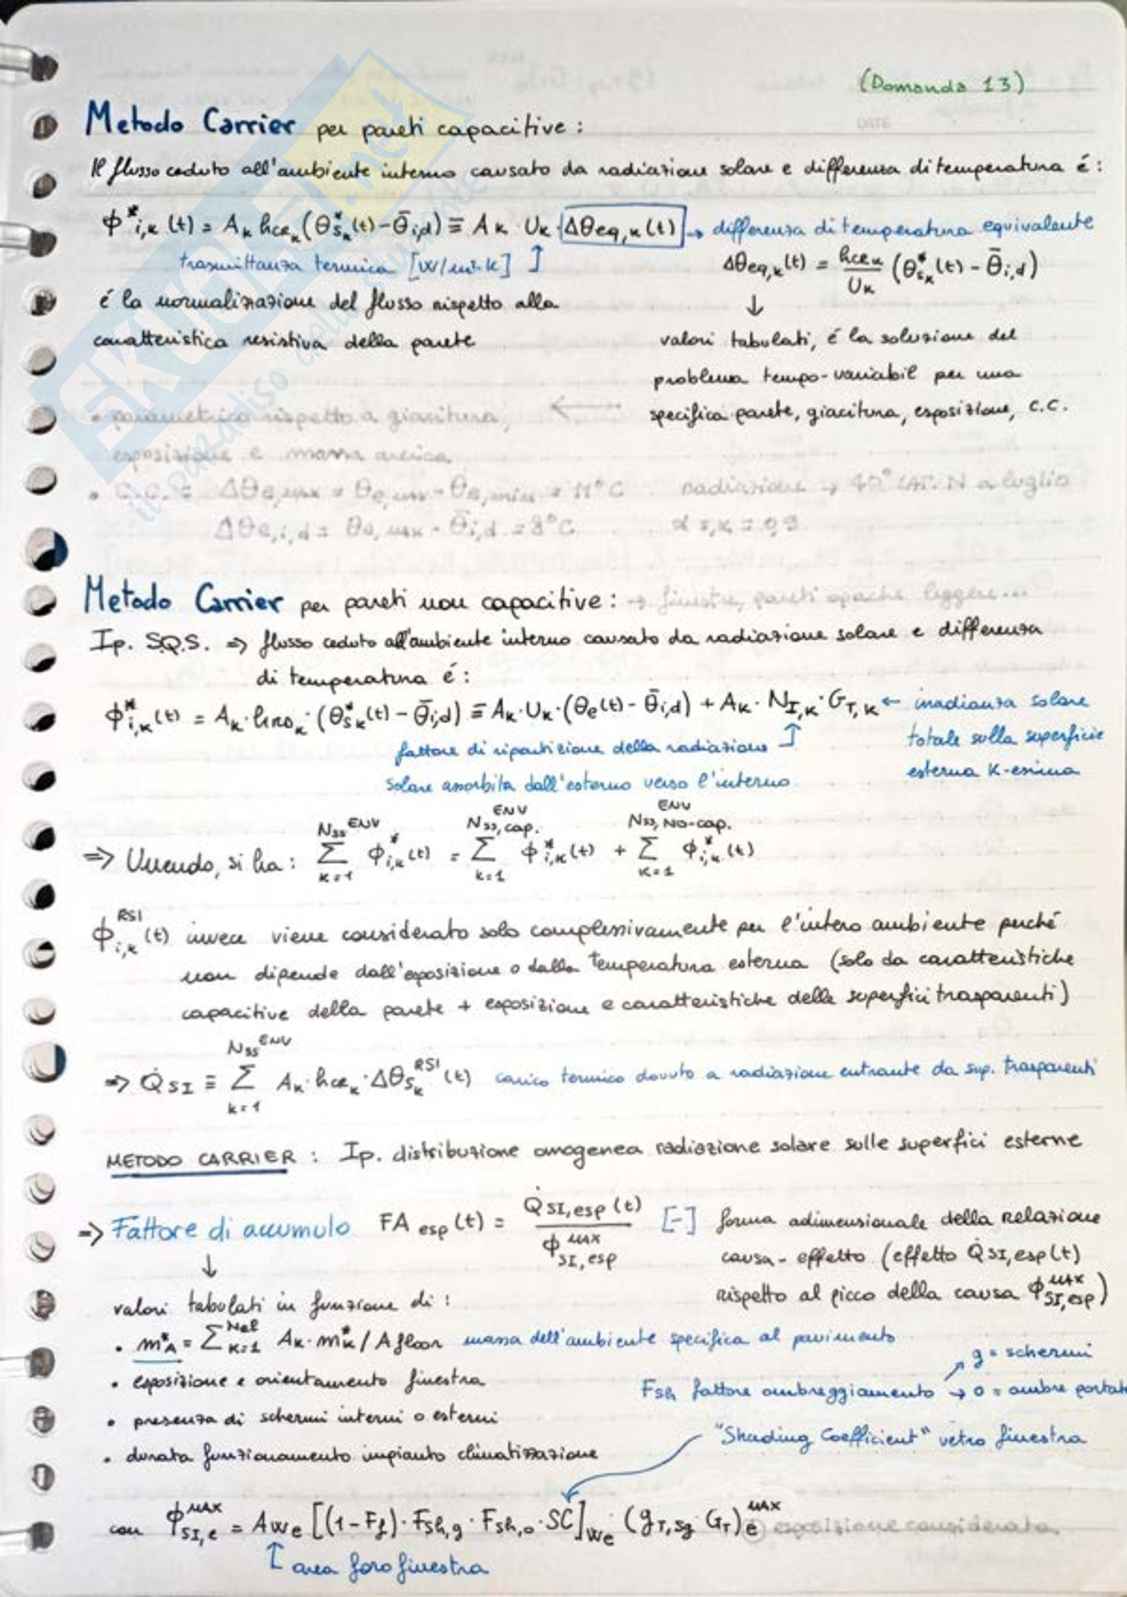 (Domanda 13)
Metodo Carrier per pareti capacitive:
Il flusso ceduto all'ambiente interno causato da radiazione solare e differenza di temperatura è:
ϕ*i,k (t) = Ak hcek (θ*sk(t) - θ̄i,d) ≡ Ak · Uk · Δθeq,k(t) → differenza di temperatura equivalente
trasmittanza termica [W/m²·K] ↑
Δθeq,k(t) = hcek/Uk (θ*sk(t) - θ̄i,d)
è la normalizzazione del flusso rispetto alla
caratteristica resistiva della parete
↓
valori tabulati, è la soluzione del
problema tempo-variabil per una
specifica parete, giacitura, esposizione, c.c.
• parametrico rispetto a giacitura, ←
esposizione e massa areica
• C.C. = Δθe,max = θe,max - θe,min = 11°C radiazione → 40° LAT. N a luglio
Δθe,i,d = θe,max - θ̄i,d = 8°C α s,k = 0,9
Metodo Carrier per pareti non capacitive: → finestre, pareti opache leggere...
Ip. S.Q.S. ⇒ flusso ceduto all'ambiente interno causato da radiazione solare e differenza
di temperatura è:
ϕ*i,k (t) = Ak · hirok · (θ*sk(t) - θ̄i,d) ≡ Ak · Uk · (θe(t) - θ̄i,d) + Ak · NI,k · GT,k ← irradianza solare
totale sulla superficie
esterna K-esima
fattore di ripartizione della radiazione ↑
solare assorbita dall'esterno verso l'interno
⇒ Unendo, si ha: Σ k=1 Nss ENV ϕ*i,k(t) = Σ k=1 Nss,cap. ENV ϕ*i,k(t) + Σ k=1 Nss,NO-cap. ENV ϕ*i,k(t)
ϕ RSI i,k (t) invece viene considerato solo complessivamente per l'intero ambiente perché
non dipende dall'esposizione o dalla temperatura esterna (solo da caratteristiche
capacitive della parete + esposizione e caratteristiche delle superfici trasparenti)
⇒ Q̇SI ≡ Σ k=1 Nss ENV Ak · hcek · Δθsk RSI (t) carico termico dovuto a radiazione entrante da sup. trasparenti
METODO CARRIER : Ip. distribuzione omogenea radiazione solare sulle superfici esterne
⇒ Fattore di accumulo FA esp (t) = Q̇SI,esp (t) / ϕ MAX SI,esp [-] forma adimensionale della relazione
causa-effetto (effetto Q̇SI,esp(t)
rispetto al picco della causa ϕ MAX SI,esp)
↓
valori tabulati in funzione di:
• m*A = Σ k=1 Nel Ak · m*k / A floor massa dell'ambiente specifica al pavimento
• esposizione e orientamento finestra
• presenza di schermi interni o esterni
• durata funzionamento impianto climatizzazione
Fsh fattore ombreggiamento
g = schermi
→ o = ombre portate
"Shading Coefficient" vetro finestra
con ϕ MAX SI,e = Awe [(1-Ff) · Fsh,g · Fsh,o · SC]We · (gT,sg GT) MAX e esposizione considerata
↑ area foro finestra